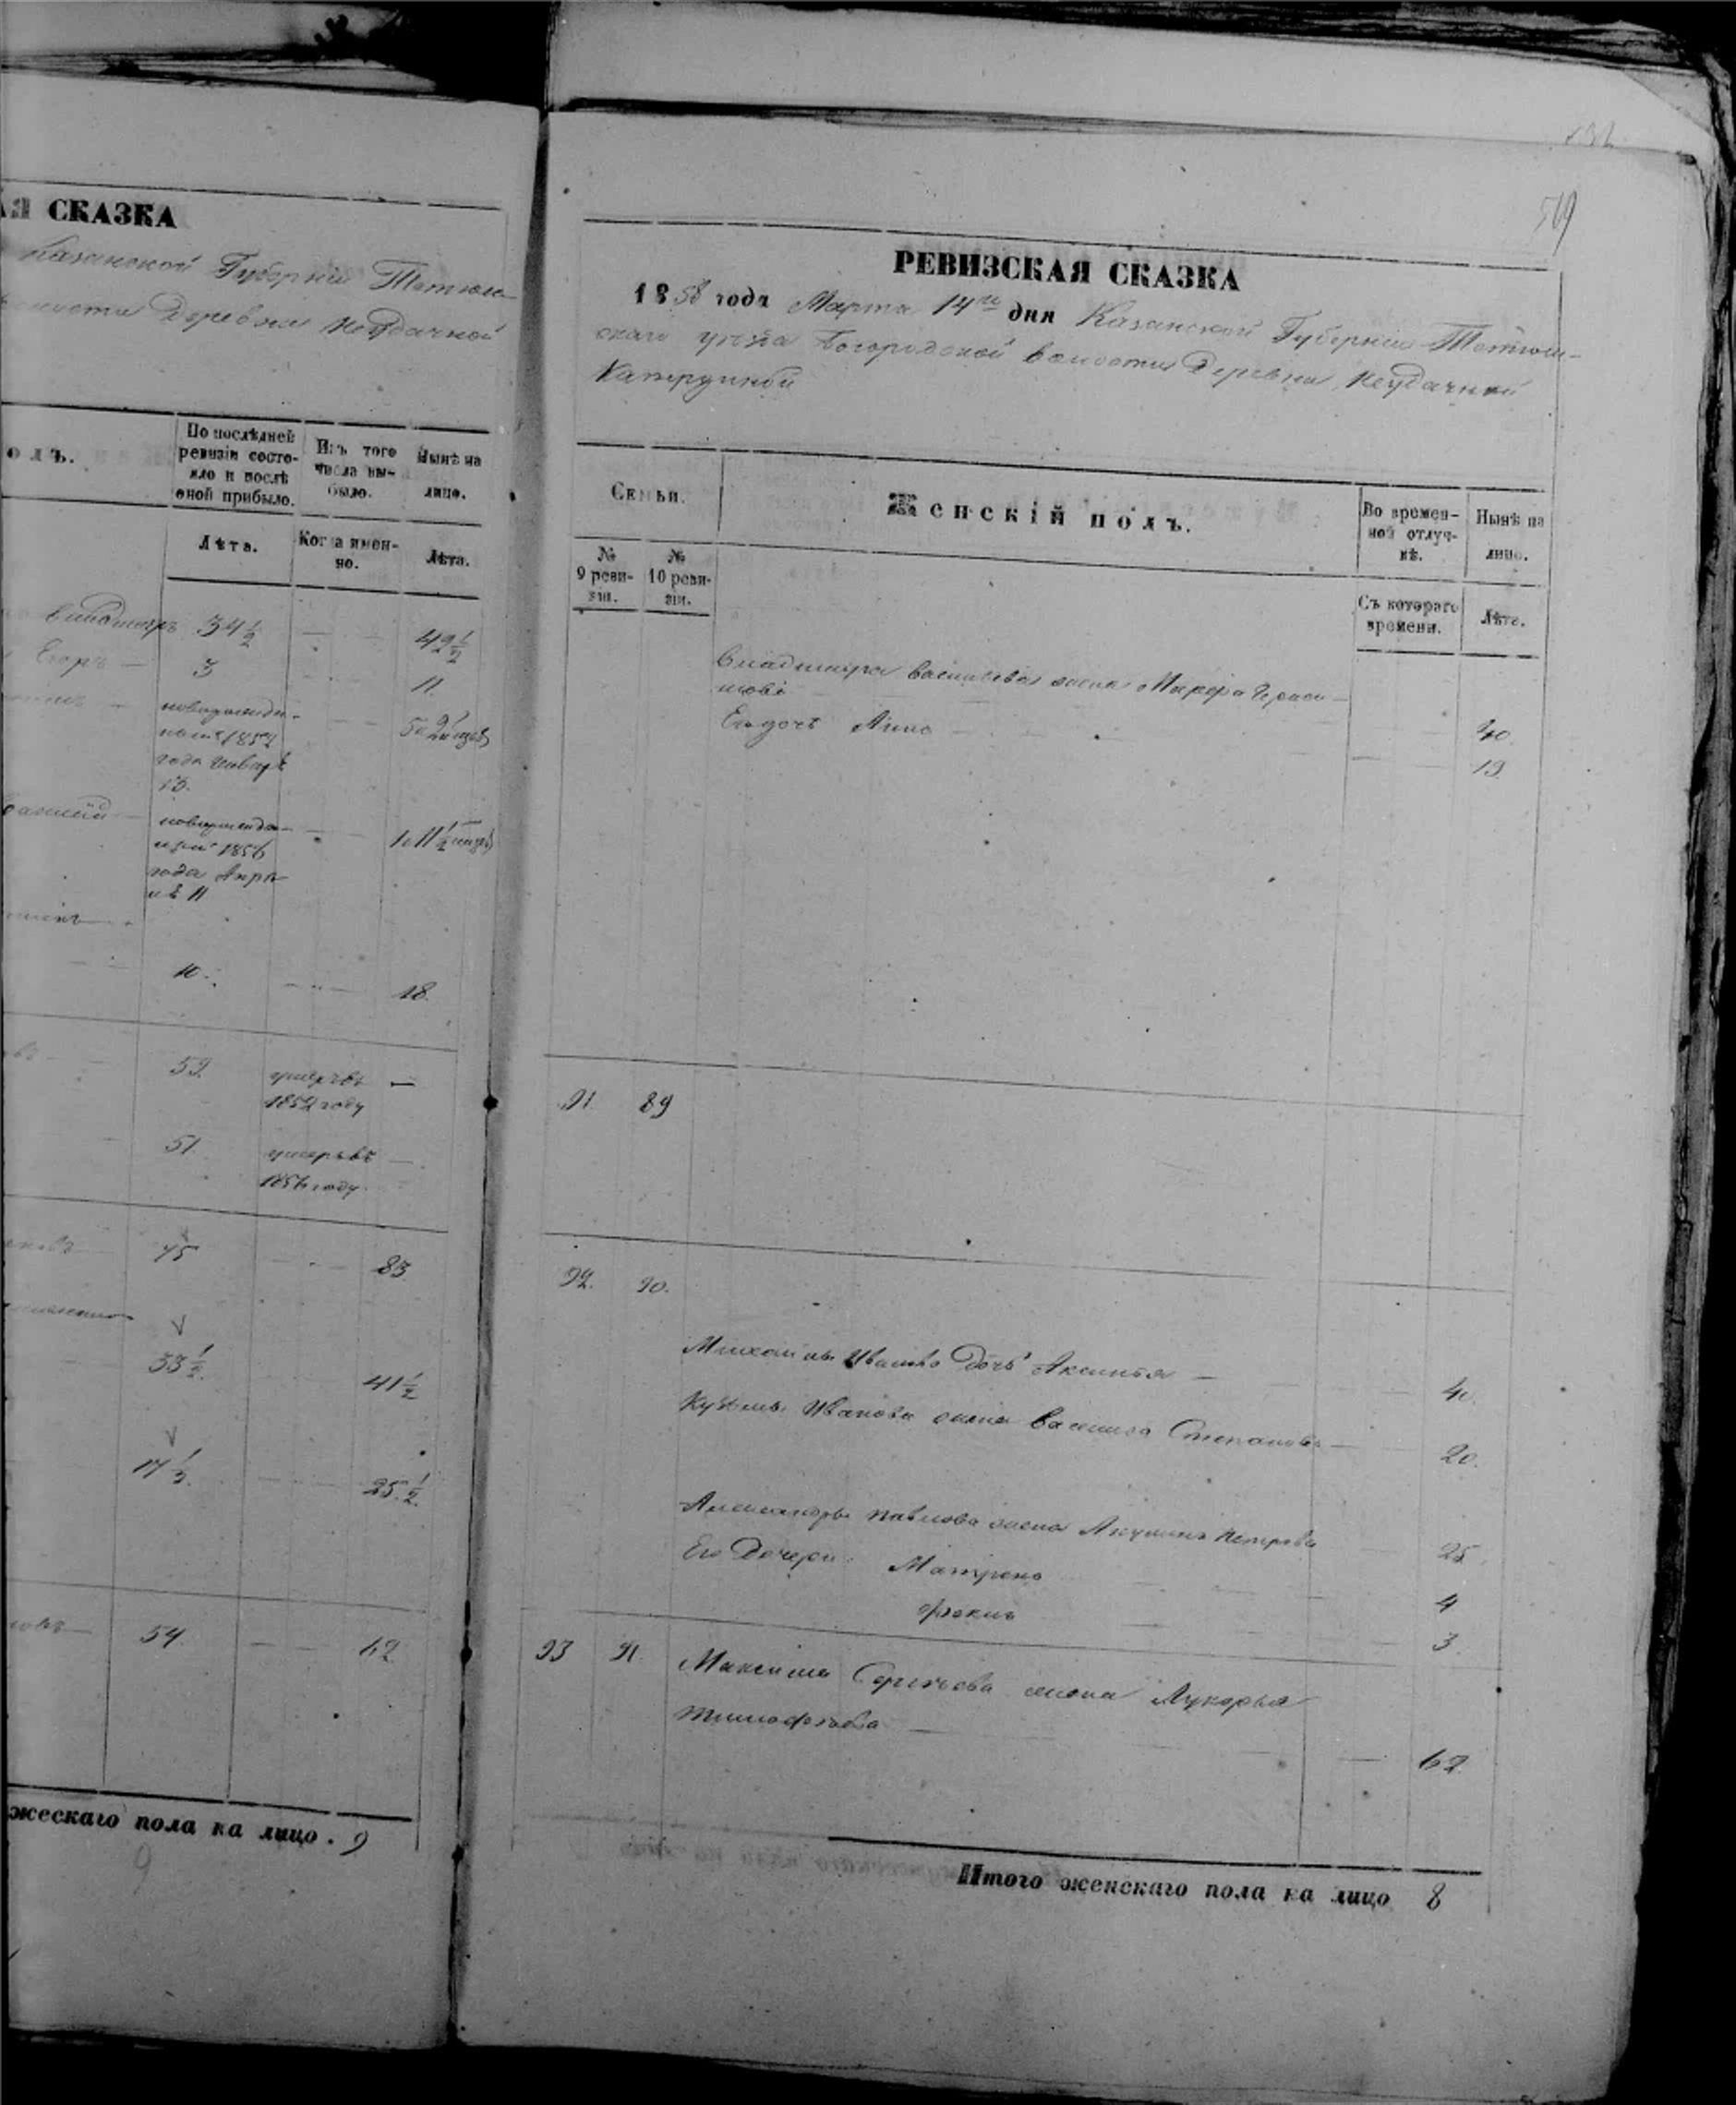 АЯ СКАЗКА
Казанской Губерніи Тетюш-
волости Деревни Неудачной
олъ.
По послѣдней
ревизіи состо-
яло и послѣ
оной прибыло.
Изъ того
числа вы-
было.
Нынѣ на
лицо.
Лѣта.
Когда имен-
но.
Лѣта.
Владимиръ 34 1/2 — 42 1/2
Егоръ — 3 — 11
новорожден-
1852
года Январѣ
13.
новорожден-
1856
года Апрѣ-
лѣ 11
10. — 18.
52. умеръ въ —
1852 году
51 умеръ въ —
1856 году
75 — 83
33 1/2. 41 1/2
17 1/2. — 25 1/2.
54. — 62
жескаго пола на лицо. 9
9
519
РЕВИЗСКАЯ СКАЗКА
1858 года Марта 14го дня Казанской Губерніи Тетюш-
скаго уѣзда Богородской волости Деревни Неудачной
Семьи.
Женскій полъ.
Во времен-
ной отлуч-
кѣ.
Нынѣ на
лицо.
№
9 реви-
зіи.
№
10 реви-
зіи.
Съ котораго
времени.
Лѣта.
Владимира Васильева жена Мавра Гераси-
мова 40.
Его дочь Анна — 19
91 89
92. 90.
Михайлы Иванова Дочь Аксинья — 40.
Кузьмы Иванова жена Василиса Степанова — 20.
Александра Павлова жена Акулина Петрова 25.
Его Дочери: Матрена 4
Фекла 3.
93 91. Максима Сергѣева жена Лукерья
Тимофѣева — 62
Итого женскаго пола на лицо 8